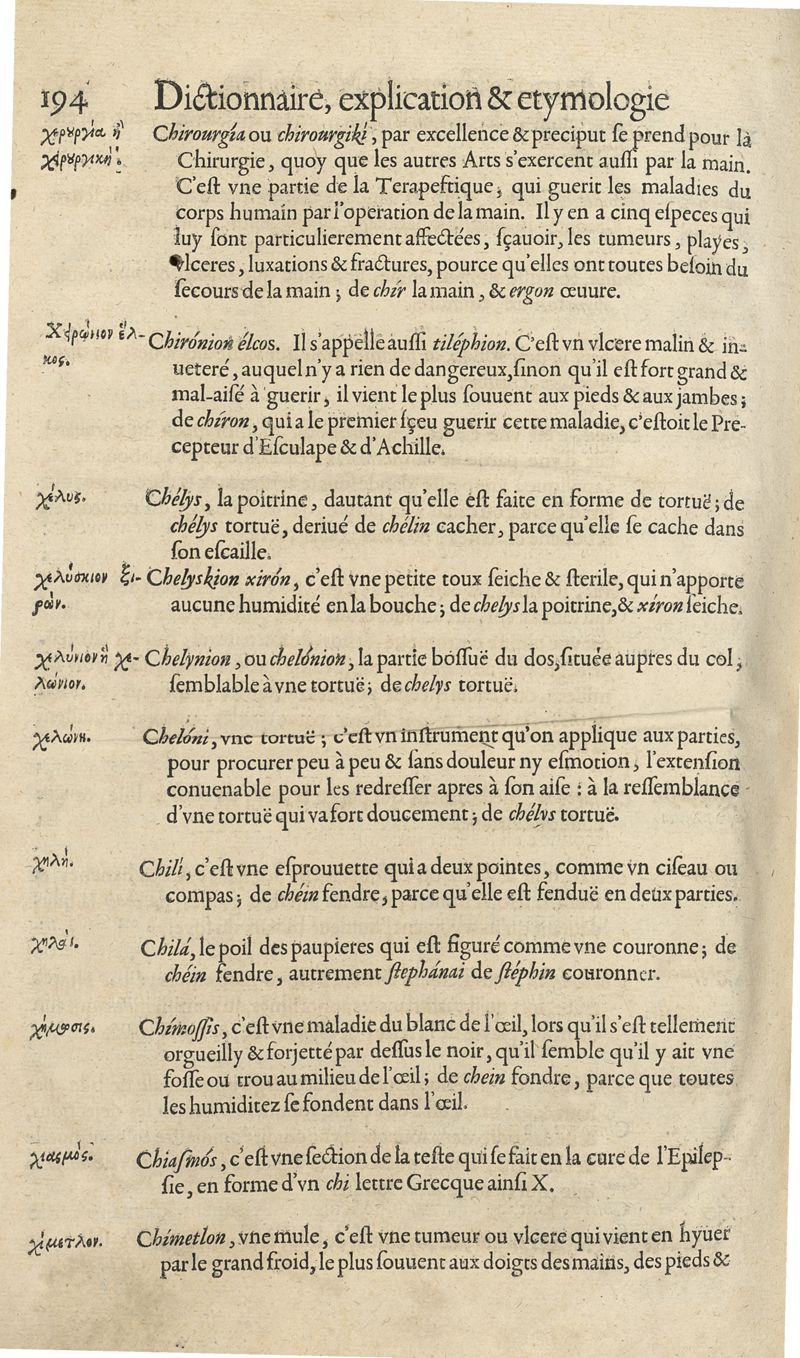 194 Dictionnaire, explication & etymologie
χειρουργία ἢ
χειρουργική.
Chirourgía ou chirourgikí, par excellence & preciput ſe prend pour la
Chirurgie, quoy que les autres Arts s'exercent auſſi par la main.
C'eſt vne partie de la Terapeſtique, qui guerit les maladies du
corps humain par l'operation de la main. Il y en a cinq eſpeces qui
luy ſont particulierement affectées, ſçauoir, les tumeurs, playes,
vlceres, luxations & fractures, pource qu'elles ont toutes beſoin du
ſecours de la main; de chír la main, & ergon œuure.
Χειρώνιον ἕλ-
κος.
Chirónion élcos. Il s'appelle auſſi tiléphion. C'eſt vn vlcere malin & in-
ueteré, auquel n'y a rien de dangereux, ſinon qu'il eſt fort grand &
mal-aiſé à guerir, il vient le plus ſouuent aux pieds & aux jambes;
de chíron, qui a le premier ſçeu guerir cette maladie, c'eſtoit le Pre-
cepteur d'Eſculape & d'Achille.
χέλυς.
Chélys, la poitrine, dautant qu'elle eſt faite en forme de tortuë; de
chélys tortuë, deriué de chélin cacher, parce qu'elle ſe cache dans
ſon eſcaille.
χελύσκιον ξι-
ρών.
Chelyskion xirón, c'eſt vne petite toux ſeiche & ſterile, qui n'apporte
aucune humidité en la bouche; de chelys la poitrine, & xíron ſeiche.
χελύνιον ἢ χε-
λώνιον.
Chelynion, ou chelónion, la partie boſſuë du dos, ſituée aupres du col,
ſemblable à vne tortuë; de chelys tortuë.
χελώνη.
Chelóni, vne tortuë; c'eſt vn inſtrument qu'on applique aux parties,
pour procurer peu à peu & ſans douleur ny eſmotion, l'extenſion
conuenable pour les redreſſer apres à ſon aiſe: à la reſſemblance
d'vne tortuë qui va fort doucement; de chélys tortuë.
χηλή.
Chilí, c'eſt vne eſprouuette qui a deux pointes, comme vn ciſeau ou
compas; de chéin fendre, parce qu'elle eſt fenduë en deux parties.
χηλαί.
Chilá, le poil des paupieres qui eſt figuré comme vne couronne; de
chéin fendre, autrement ſtephánai de ſtéphin couronner.
χήμωσις.
Chímoſſis, c'eſt vne maladie du blanc de l'œil, lors qu'il s'eſt tellement
orgueilly & forjetté par deſſus le noir, qu'il ſemble qu'il y ait vne
foſſe ou trou au milieu de l'œil; de chein fondre, parce que toutes
les humiditez ſe fondent dans l'œil.
χιασμός.
Chiaſmós, c'eſt vne ſection de la teſte qui ſe fait en la cure de l'Epilep-
ſie, en forme d'vn chi lettre Grecque ainſi X.
χίμετλον.
Chímetlon, vne mule, c'eſt vne tumeur ou vlcere qui vient en hyuer
par le grand froid, le plus ſouuent aux doigts des mains, des pieds &